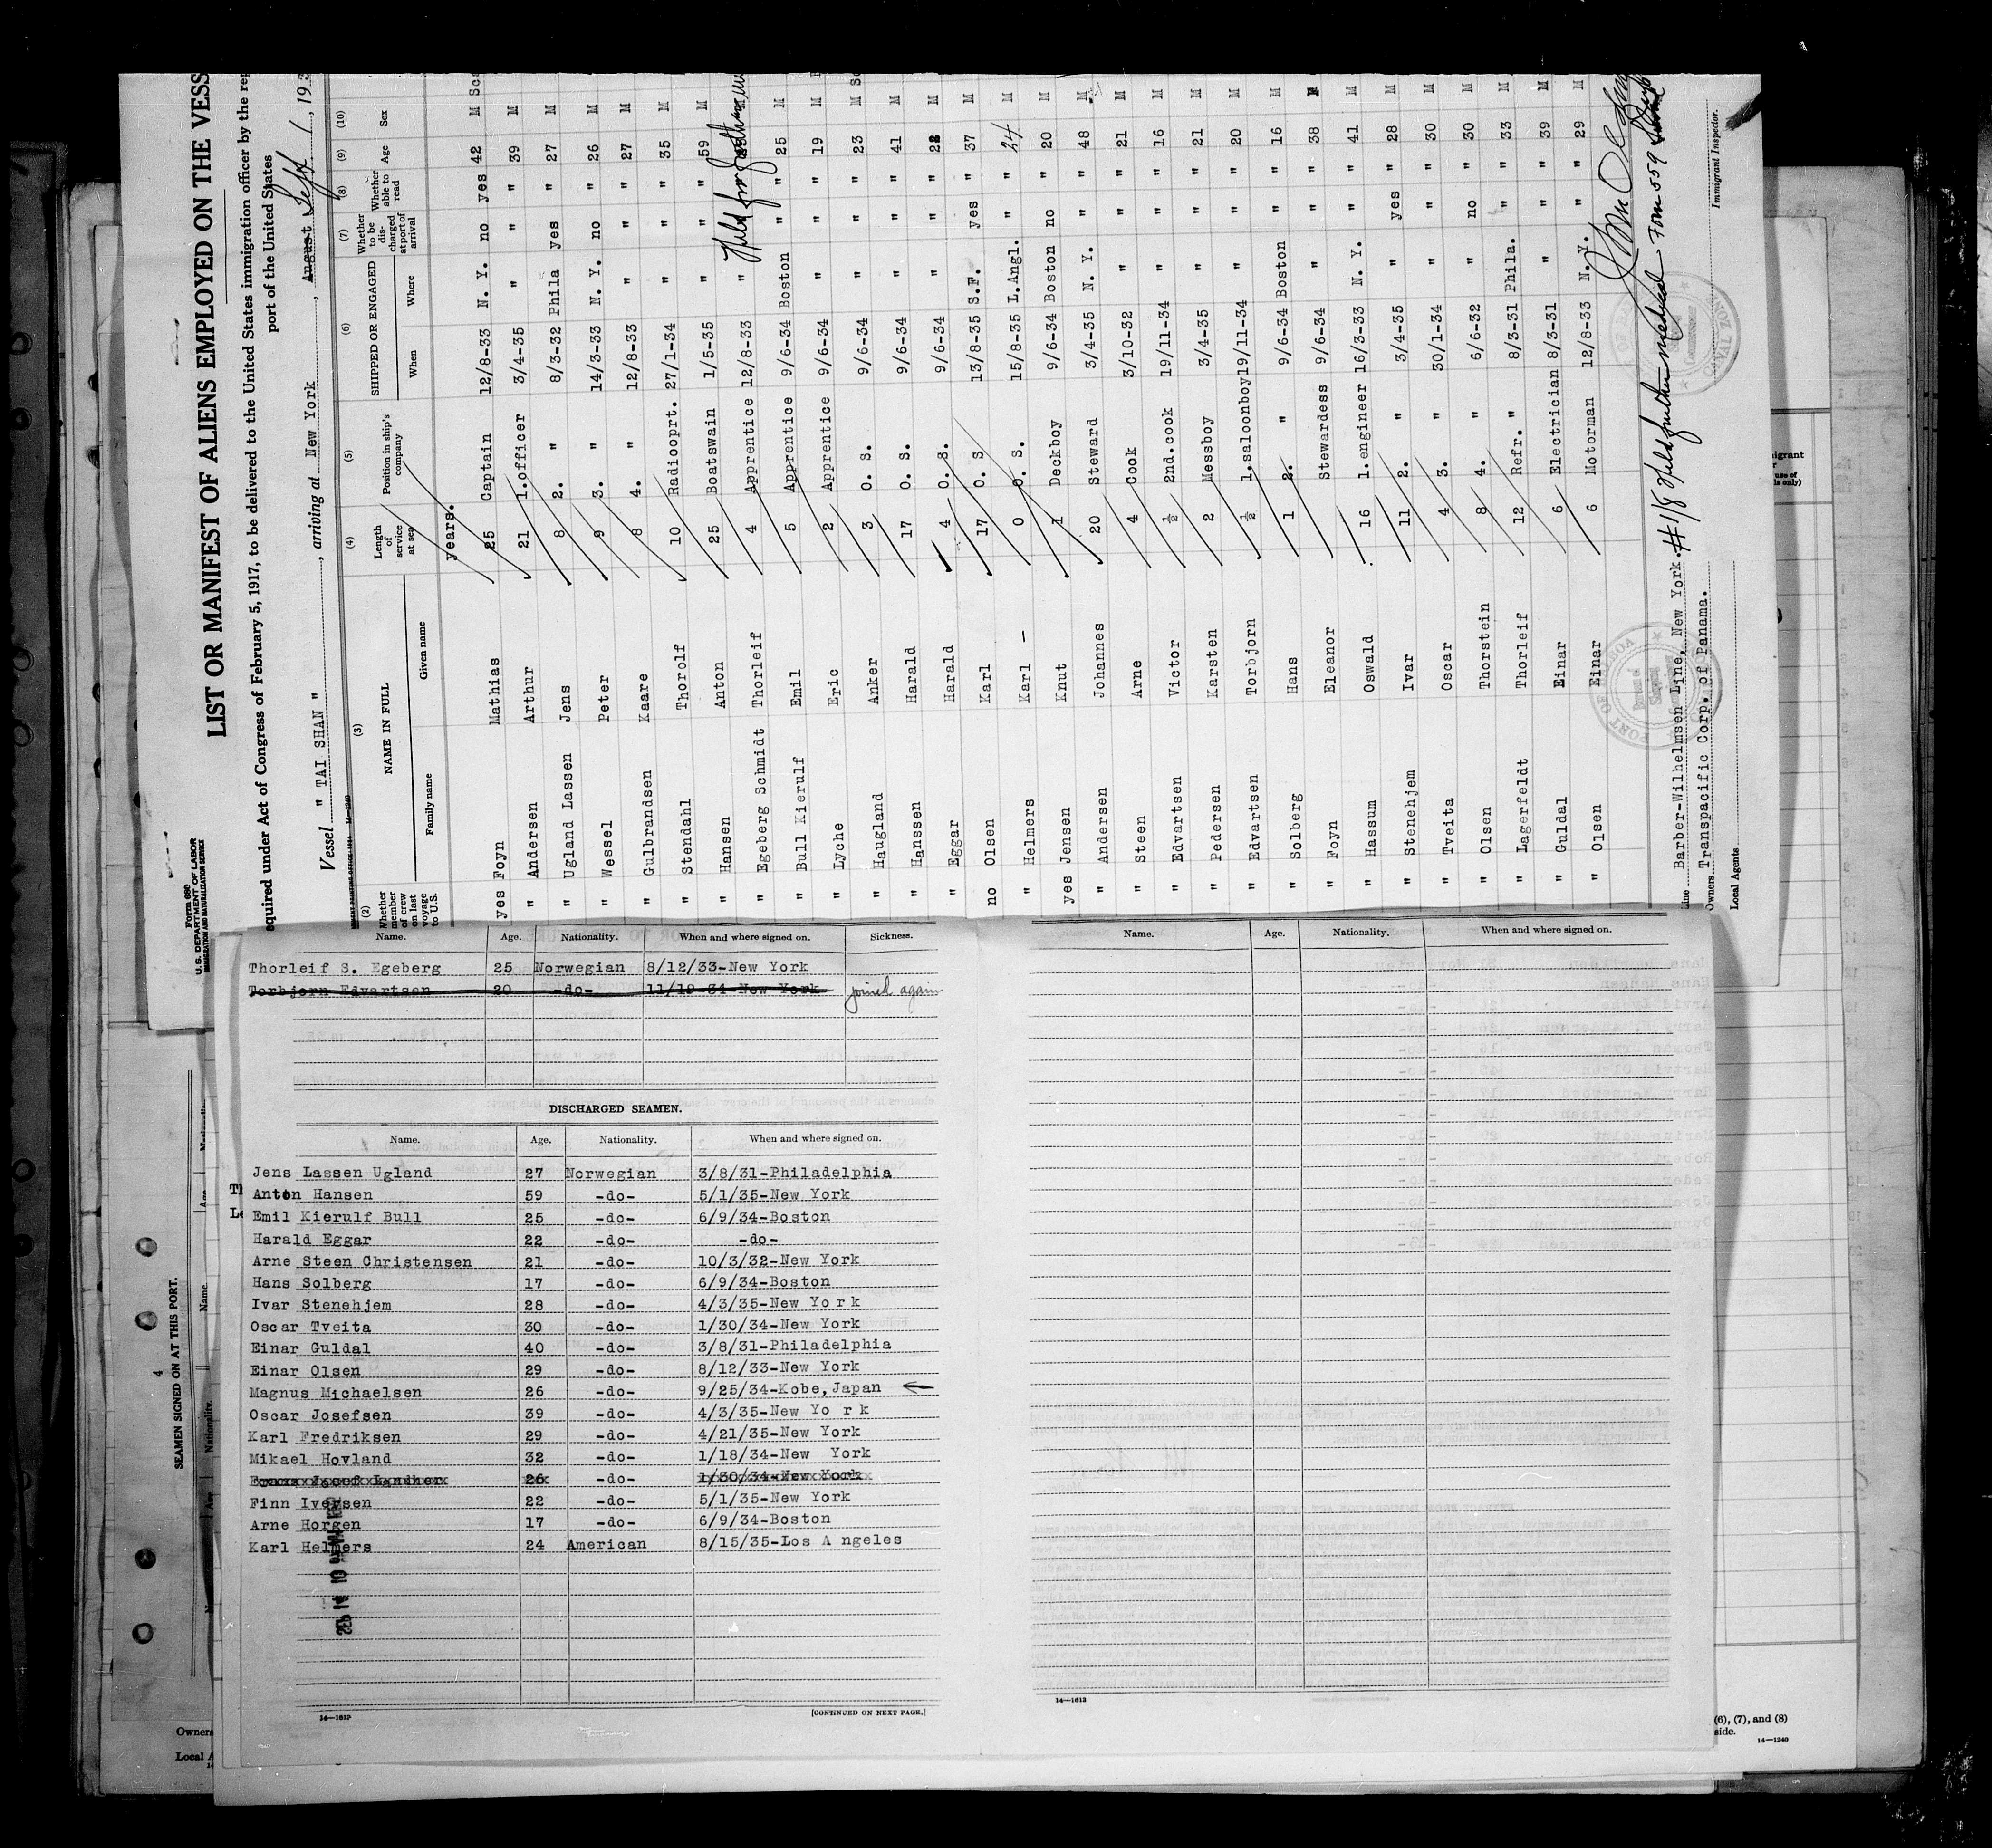 Form 680
U. S. DEPARTMENT OF LABOR
IMMIGRATION AND NATURALIZATION SERVICE
LIST OR MANIFEST OF ALIENS EMPLOYED ON THE VESS
equired under Act of Congress of February 5, 1917, to be delivered to the United States immigration officer by the rep
port of the United States
Vessel " TAI SHAN " , arriving at New York , August Sept 1 , 193
(2) (3) (4) (5) (6) (7) (8) (9) (10)
Whether member of crew on last voyage to U.S. NAME IN FULL Family name Given name Length of service at sea Position in ship's company SHIPPED OR ENGAGED When Where Whether to be discharged at port of arrival Whether able to read Age Sex
years.
yes Foyn Mathias 25 Captain 12/8-33 N. Y. no yes 42 M Sca
" Andersen Arthur 21 1.officer 3/4-35 " " " 39 M
" Ugland Lassen Jens 8 2. " 8/3-32 Phila yes " 27 M
" Wessel Peter 9 3. " 14/3-33 N. Y. no " 26 M
" Gulbrandsen Kaare 8 4. " 12/8-33 " " " 27 M
" Stendahl Thorolf 10 Radiooprt. 27/1-34 " " " 35 M
" Hansen Anton 25 Boatswain 1/5-35 " " " 59 M
" Egeberg Schmidt Thorleif 4 Apprentice 12/8-33 " Held for
" Bull Kierulf Emil 5 Apprentice 9/6-34 Boston " " 25 M
" Lyche Eric 2 Apprentice 9/6-34 " " " 19 M
" Haugland Anker 3 O. S. 9/6-34 " " " 23 M Sc
" Hanssen Harald 17 O. S. 9/6-34 " " " 41 M
" Eggar Harald 4 O. S. 9/6-34 " " " 22 M
no Olsen Karl 17 O. S 13/8-35 S.F. yes " 37 M
" Helmers Karl - 0 O. S. 15/8-35 L.Angl. " " 24 M
yes Jensen Knut 1 Deckboy 9/6-34 Boston no " 20 M
" Andersen Johannes 20 Steward 3/4-35 N. Y. " " 48 M
" Steen Arne 4 Cook 3/10-32 " " " 21 M
" Edvartsen Victor ½ 2nd.cook 19/11-34 " " " 16 M
" Pedersen Karsten 2 Messboy 3/4-35 " " " 21 M
" Edvartsen Torbjorn ½ 1.saloonboy 19/11-34 " " " 20 M
" Solberg Hans 1 2. " 9/6-34 Boston " " 16 M
" Foyn Eleanor Stewardess 9/6-34 " " " 38 F
" Hassum Oswald 16 1.engineer 16/3-33 N. Y. " " 41 M
" Stenehjem Ivar 11 2. " 3/4-35 " yes " 28 M
" Tveita Oscar 4 3. " 30/1-34 " " " 30 M
" Olsen Thorstein 8 4. " 6/6-32 " no " 30 M
" Lagerfeldt Thorleif 12 Refr. " 8/3-31 Phila. " " 33 M
" Guldal Einar 6 Electrician 8/3-31 " " " 39 M
" Olsen Einar 6 Motorman 12/8-33 N. Y. " " 29 M
Line Barber-Wilhelmsen Line, New York. #1/8 Held further medical Form 559
Owners Transpacific Corp. of Panama.
Local Agents
Immigrant Inspector.
Name. Age. Nationality. When and where signed on. Sickness.
Thorleif S. Egeberg 25 Norwegian 8/12/33-New York
Torbjorn Edvartsen 20 -do- 11/19-34-New York joined again
DISCHARGED SEAMEN.
Name. Age. Nationality. When and where signed on.
Jens Lassen Ugland 27 Norwegian 3/8/31-Philadelphia
Anton Hansen 59 -do- 5/1/35-New York
Emil Kierulf Bull 25 -do- 6/9/34-Boston
Harald Eggar 22 -do- -do-
Arne Steen Christensen 21 -do- 10/3/32-New York
Hans Solberg 17 -do- 6/9/34-Boston
Ivar Stenehjem 28 -do- 4/3/35-New Yo r k
Oscar Tveita 30 -do- 1/30/34-New York
Einar Guldal 40 -do- 3/8/31-Philadelphia
Einar Olsen 29 -do- 8/12/33-New York
Magnus Michaelsen 26 -do- 9/25/34-Kobe, Japan ←
Oscar Josefsen 39 -do- 4/3/35-New Yo r k
Karl Fredriksen 29 -do- 4/21/35-New York
Mikael Hovland 32 -do- 1/18/34-New York
26 -do- 1/30/34-New York
Finn Iversen 22 -do- 5/1/35-New York
Arne Horgen 17 -do- 6/9/34-Boston
Karl Helmers 24 American 8/15/35-Los A ngeles
[CONTINUED ON NEXT PAGE.]
Name. Age. Nationality. When and where signed on.
14—1613
4
SEAMEN SIGNED ON AT THIS PORT.
Name.
Age
Nationality.
Owners
Local A
(6), (7), and (8)
side.
14—1240